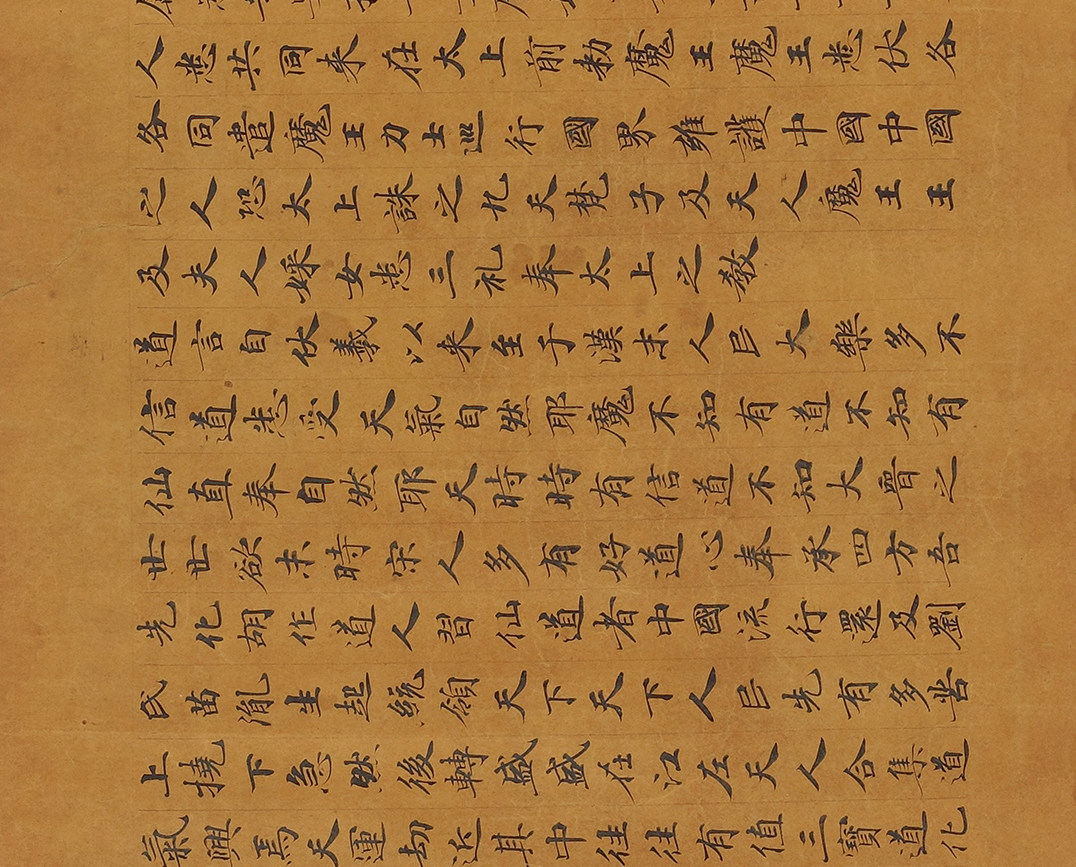 人悉共同来在太上前勅魔王魔王悉伏各
各同遣魔王力士巡行國界雍護中國中國
之人恐太上誅之九天梵子及天人魔王王
及夫人婇女悉三礼奉太上之教
道言自伏羲以来至于漢末人民大樂多不
信道悉受天氣自然耶魔不知有道不知有
仙直奉自然耶天時時有信道不知大晉之
世世欲末時宋人多有好道心奉承四方吾
先化胡作道人習仙道者中國流行還及劉
氏苗胤生起統領天下天下人民先有多苦
上撓下急然後轉盛盛在江左天人合集道
氣興焉天運劫近其中往往有值三寶道化